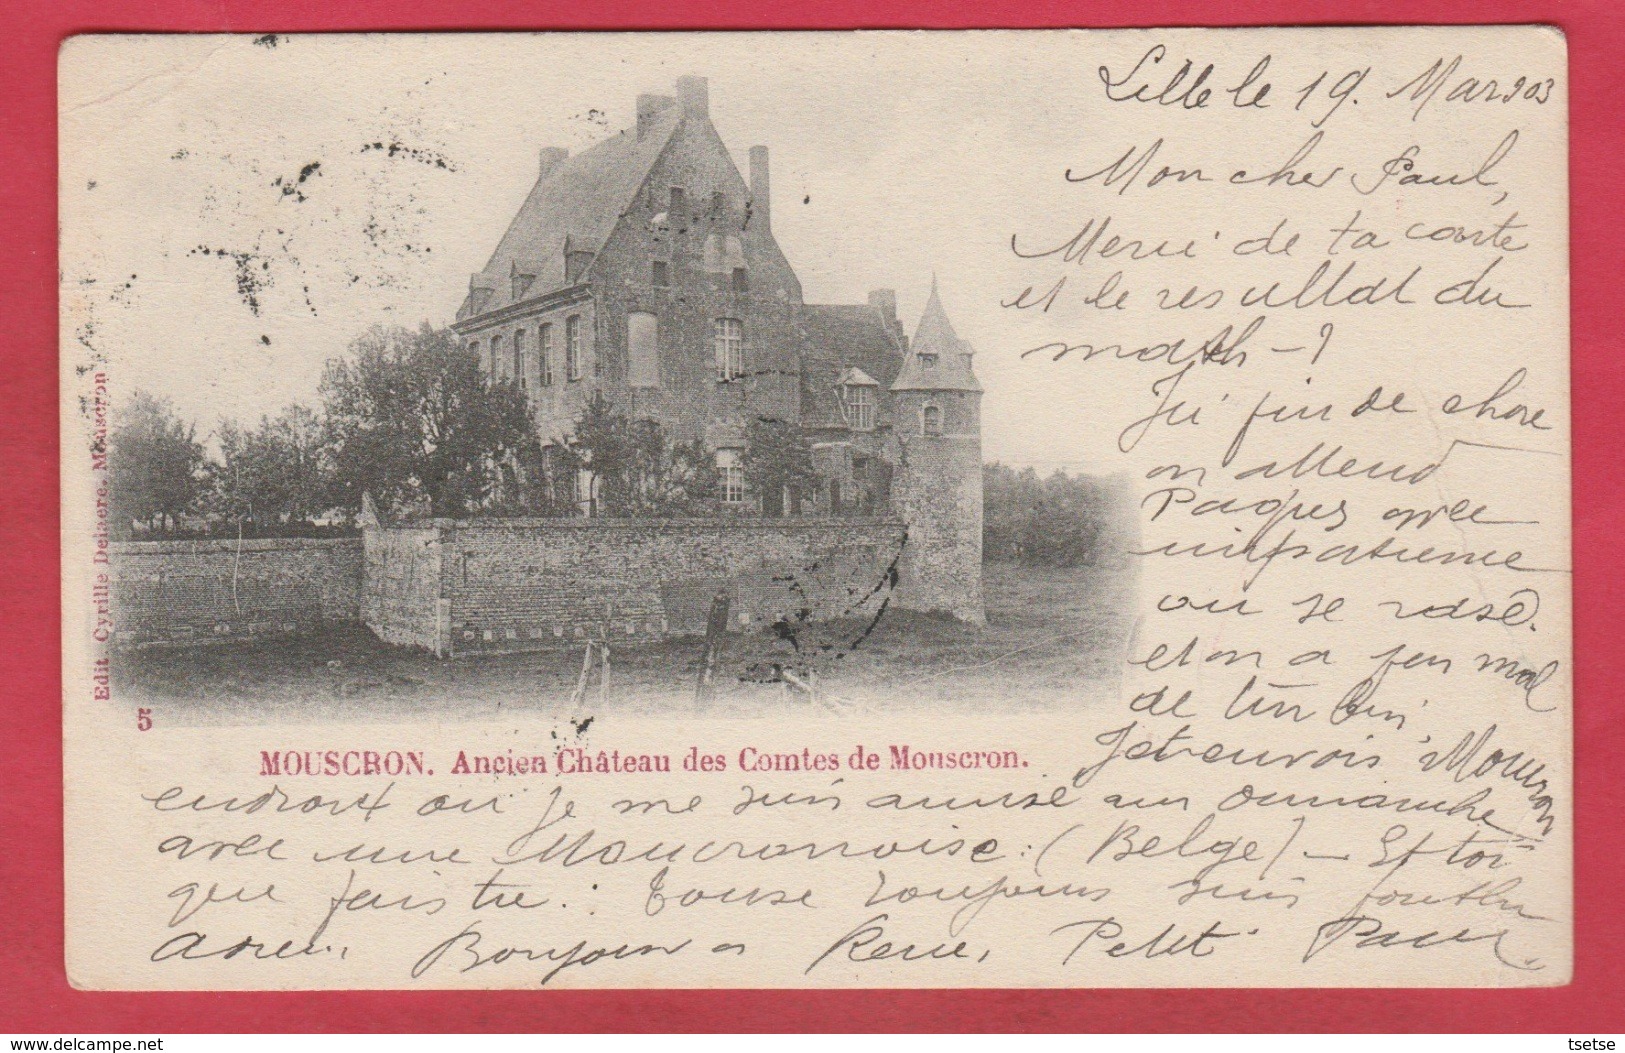 Lille le 19. Mars 903
Mon cher Paul,
Merci de ta carte
et le resultat du
match - ?
Ici peu de chose
on attend
Paques avec
impatience
on se rase.
et on a peu mal
de turbin
Je t'envois Mouscron
endroit ou je me suis amusé un Dimanche
avec une Moucronnoise : (Belge) - Et toi
que fais tu . : toujours
adieu. Bonjour a René, Petit Paul.
Edit. Cyrille Delaere. Mouscron
5
MOUSCRON. Ancien Château des Comtes de Mouscron.
www.delcampe.net
tsetse